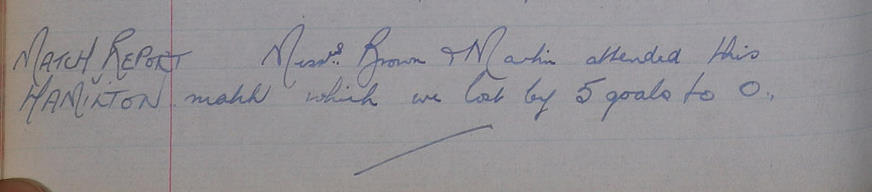 MATCH REPORT Messrs. Brown & Martin attended this
V HAMILTON match which we lost by 5 goals to 0.